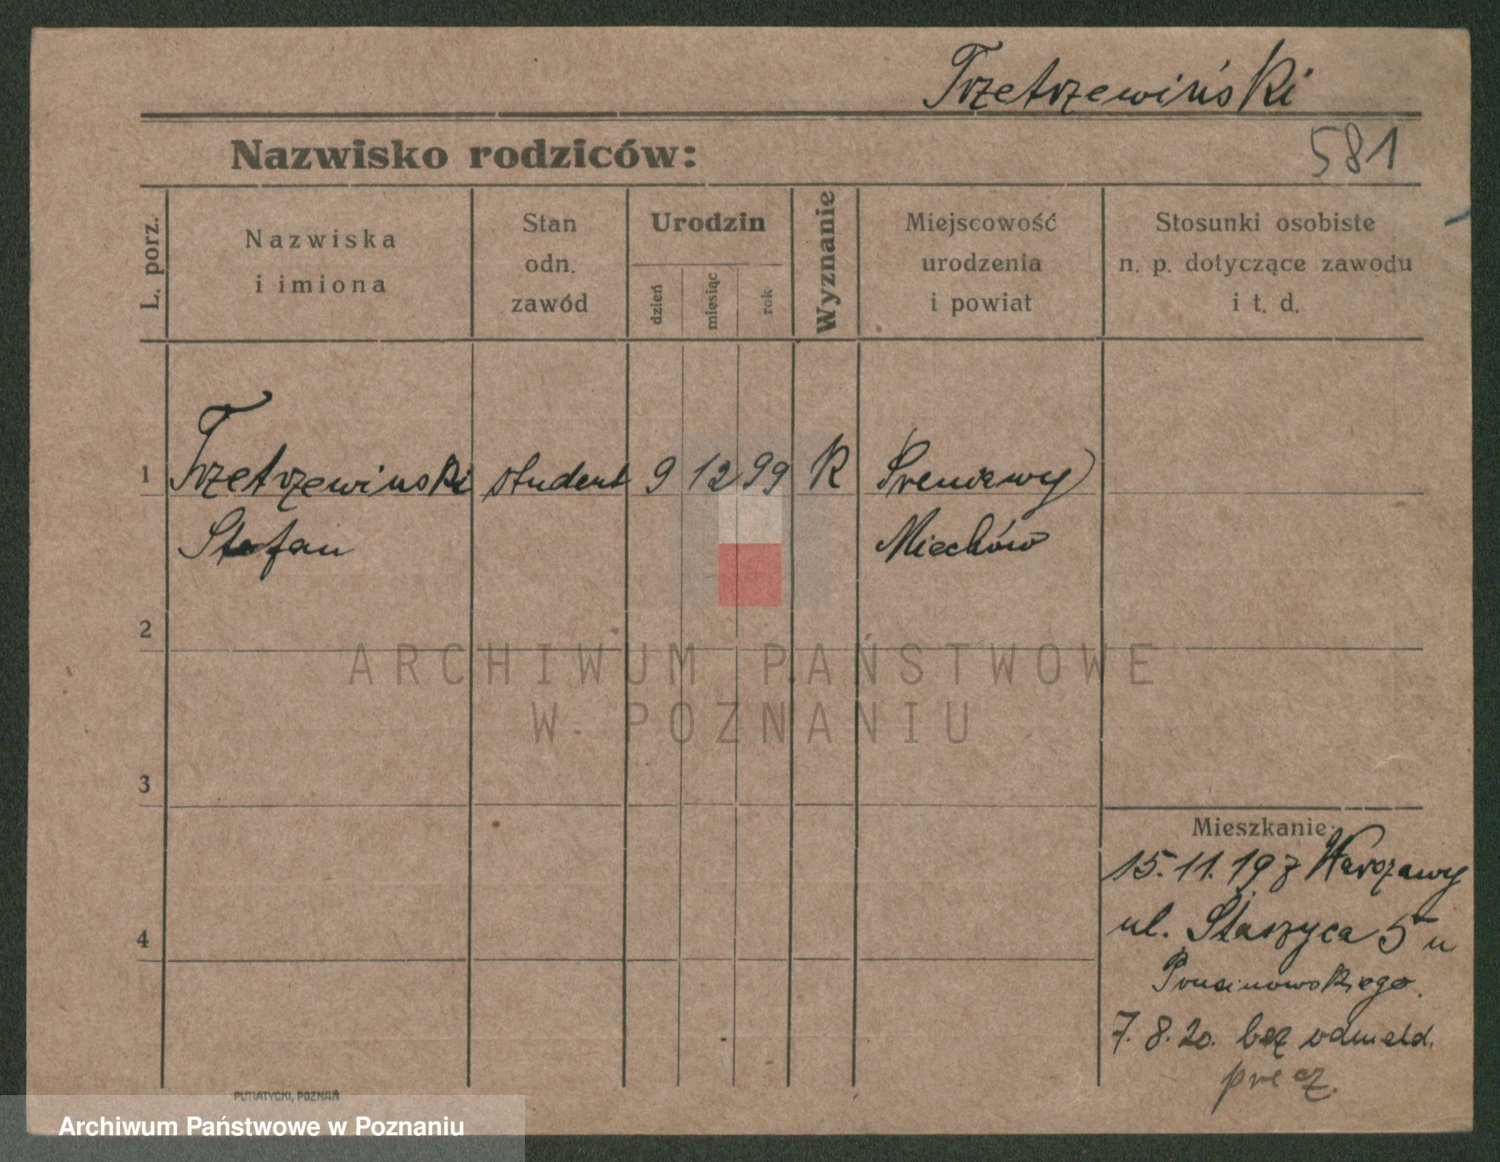 Trzetrzewiński
Nazwisko rodziców:
581
L. porz.
Nazwiska
i imiona
Stan
odn.
zawód
Urodzin
dzień
miesiąc
rok
Wyznanie
Miejscowość
urodzenia
i powiat
Stosunki osobiste
n. p. dotyczące zawodu
i t. d.
1 Trzetrzewinski student 9 12 99 K Sreniawy
Stefan Miechów
2
ARCHIWUM PAŃSTWOWE
W POZNANIU
3
Mieszkanie:
15. 11. 19 z Warszawy
4
ul. Staszyca 5 u
Prusinowskiego.
7. 8. 20. bez odmeld.
precz.
PUTIATYCKI, POZNAŃ
Archiwum Państwowe w Poznaniu